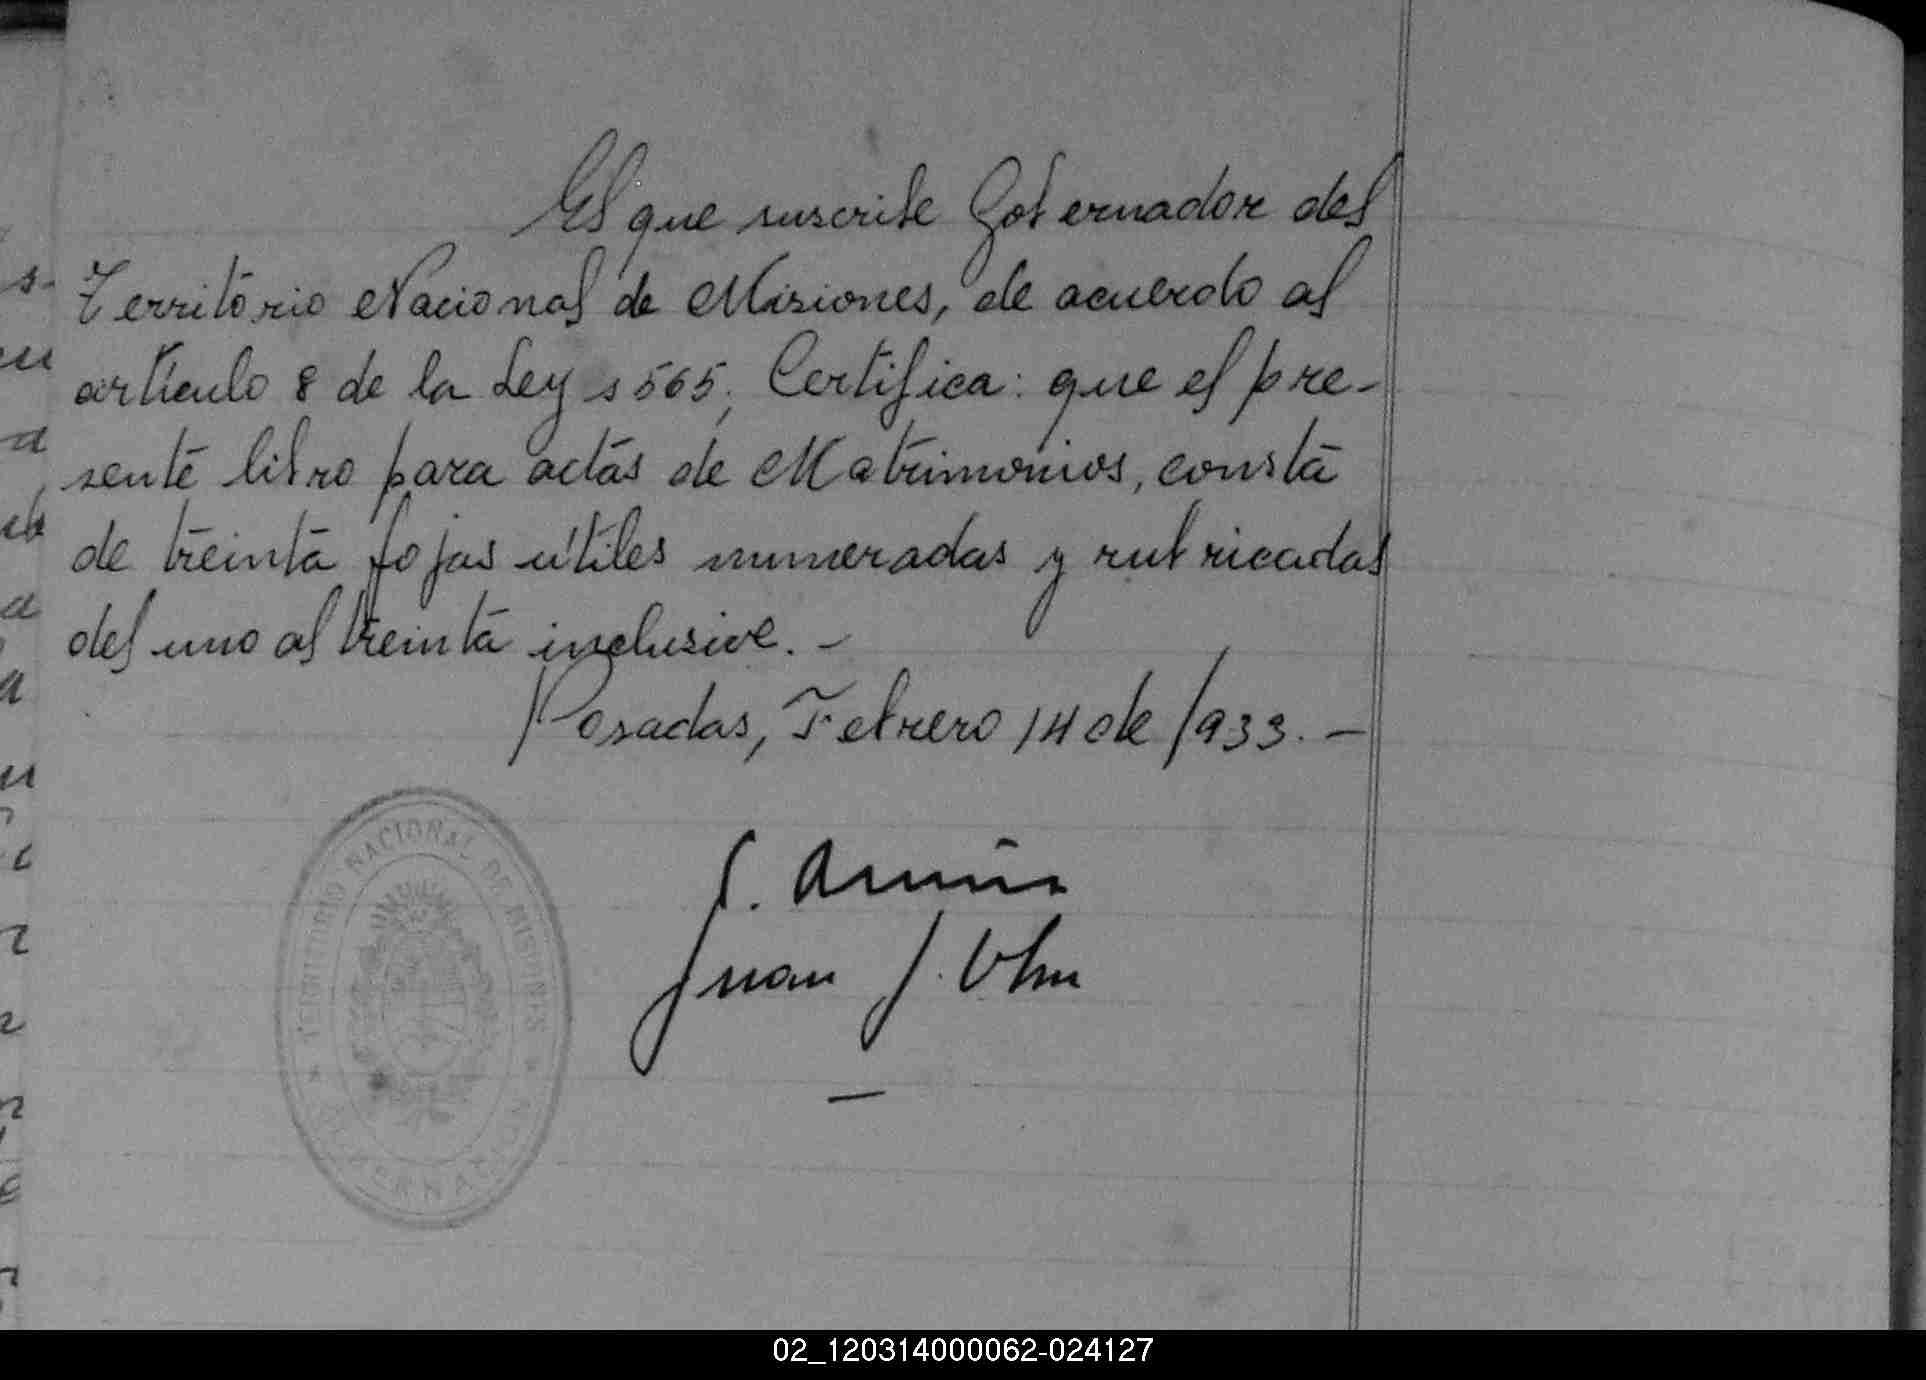 El que suscribe Gobernador del
Territorio Nacional de Misiones, de acuerdo al
artículo 8 de la Ley 1565; Certifica: que el pre-
sente libro para actas de Matrimonios, consta
de treinta fojas útiles numeradas y rubricadas
del uno al treinta inclusive. -
Posadas, Febrero 14 de 1933. -
TERRITORIO NACIONAL DE MISIONES
GOBERNACION
Juan J.
02_120314000062-024127